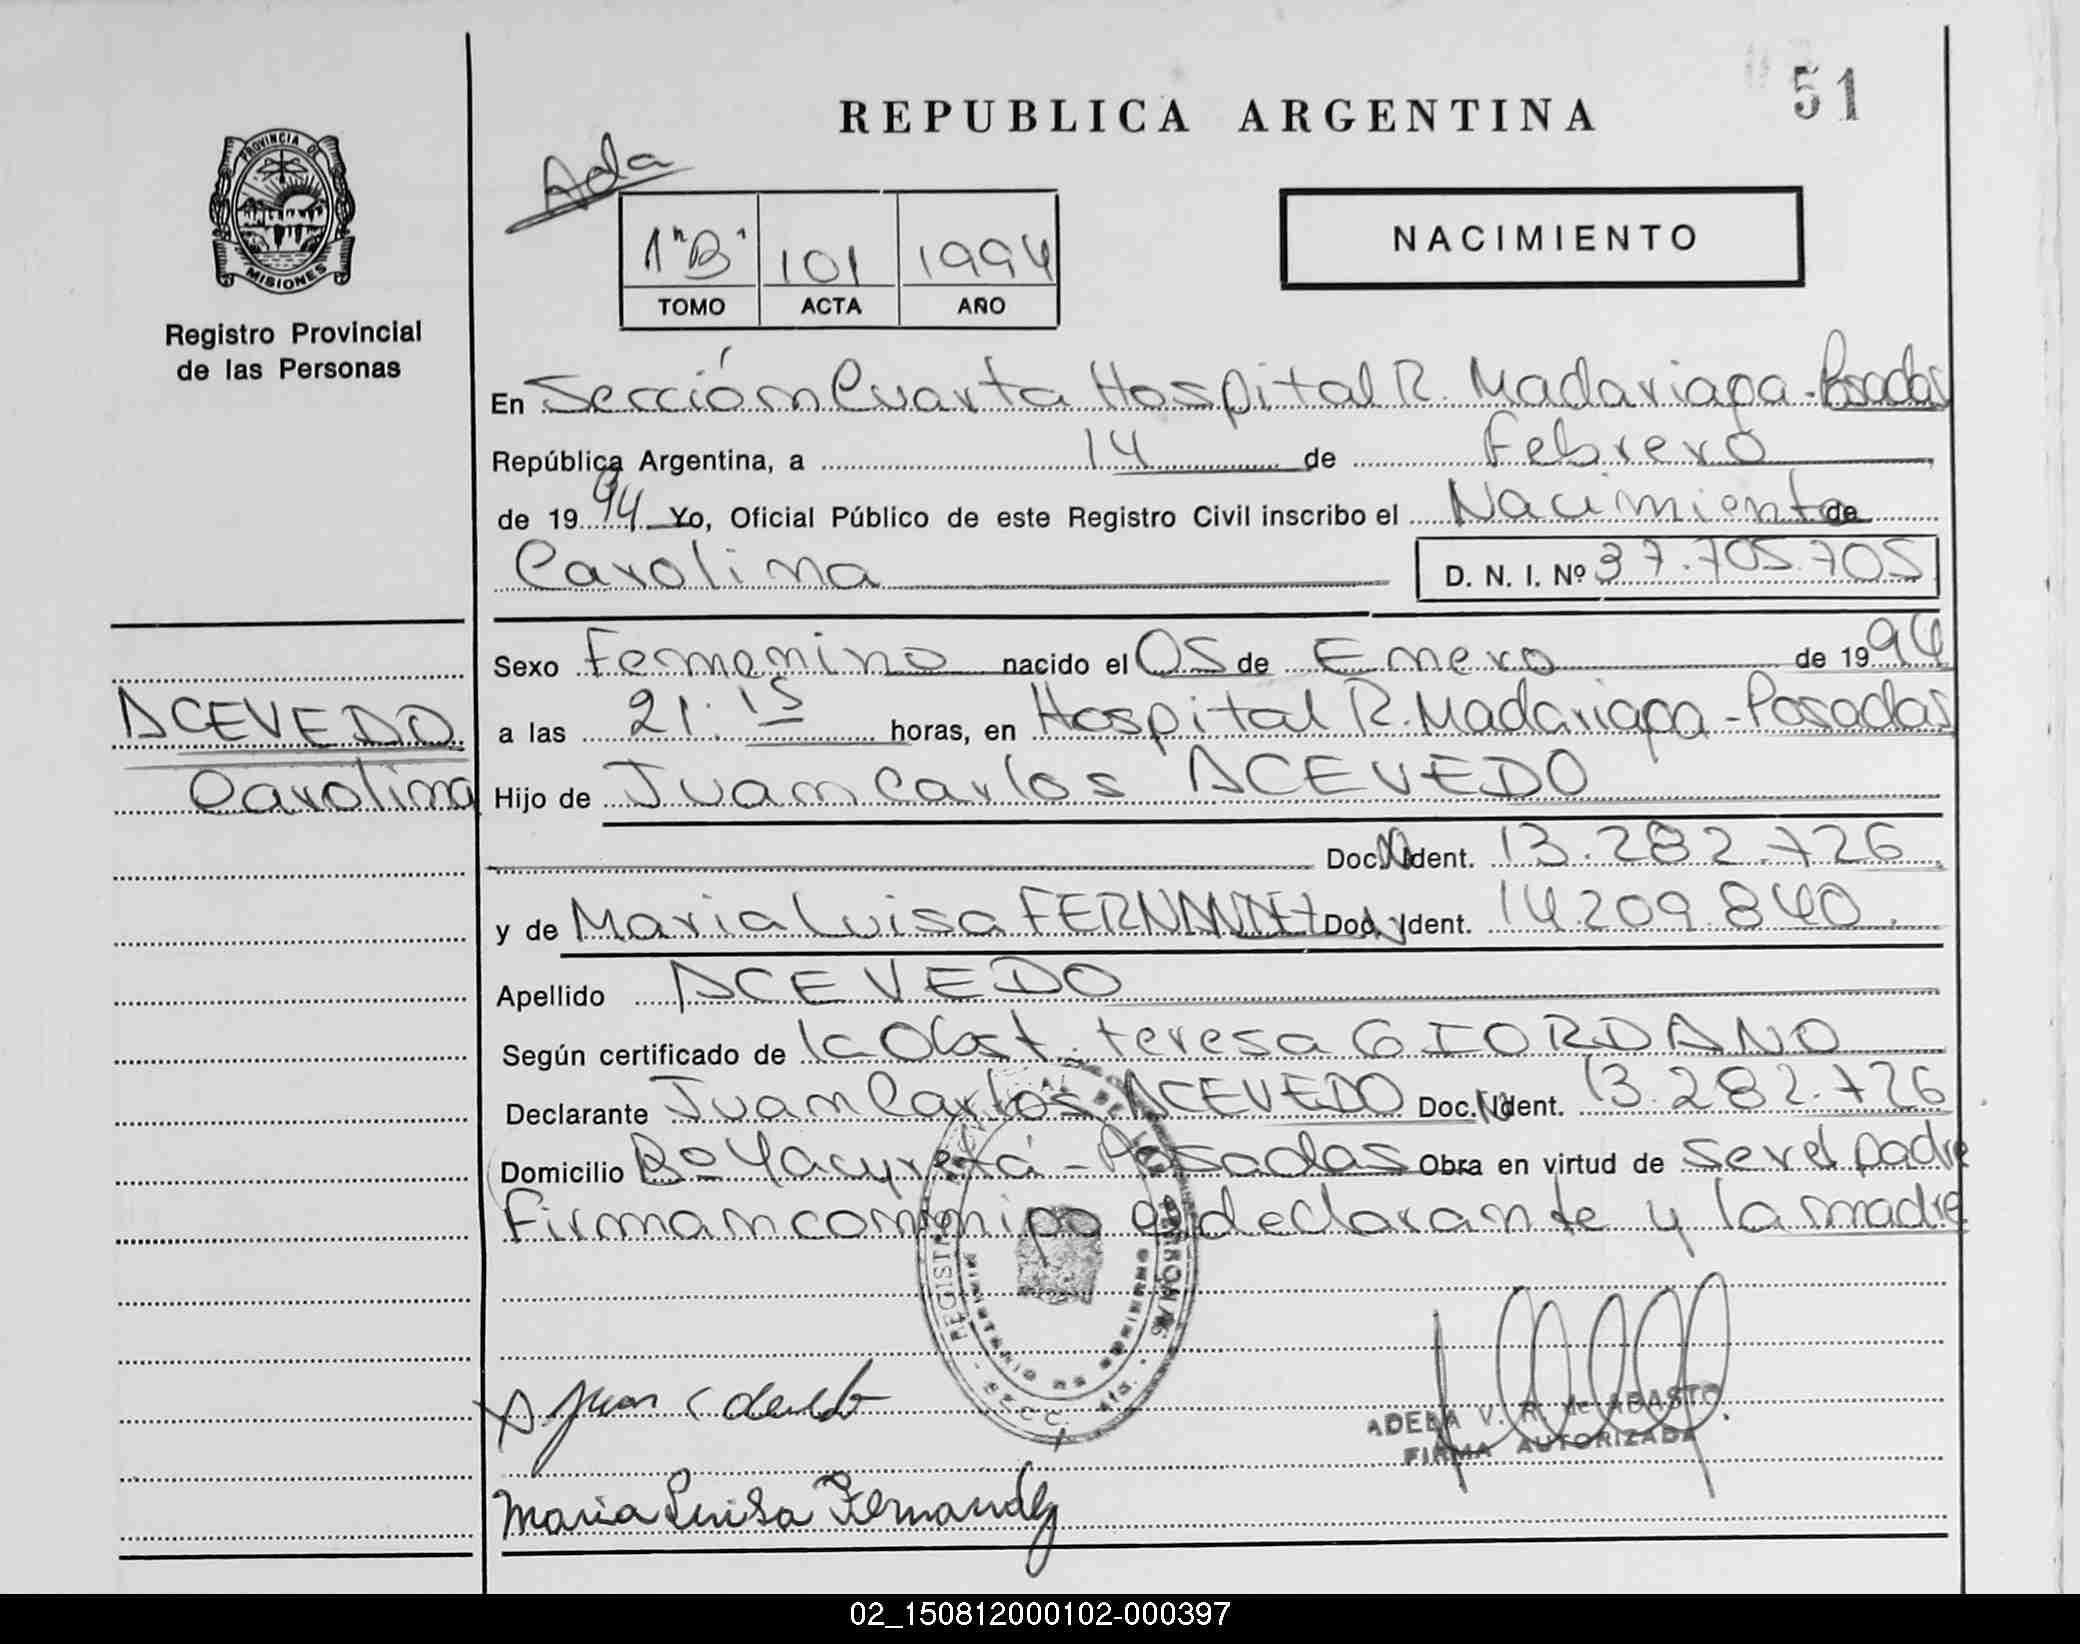 51
REPUBLICA ARGENTINA
Ada
NACIMIENTO
PROVINCIA DE
MISIONES
Registro Provincial
de las Personas
1 "B" 101 1994
TOMO ACTA AÑO
En Sección Cuarta Hospital R. Madariaga - Posadas
República Argentina, a 14 de Febrero
de 1994 Yo, Oficial Público de este Registro Civil inscribo el Nacimiento de
Carolina D. N. I. Nº 37.705.705
Sexo Femenino nacido el 05 de Enero de 1994
ACEVEDO
Carolina
a las 21:15 horas, en Hospital R. Madariaga - Posadas
Hijo de Juan Carlos ACEVEDO
Doc. Ident. 13.282.726
y de Maria Luisa FERNANDEZ Doc. Ident. 14.209.840.
Apellido ACEVEDO
Según certificado de la Obst. teresa GIORDANO
Declarante Juan Carlos ACEVEDO Doc. Ident. 13.282.726
Domicilio Bº Yacyretá - Posadas Obra en virtud de ser el padre
Firman conmigo el declarante y la madre
REGISTRO PERSONAS
SECC. 4ta.
Juan C
ADELA V. R. de ABASTO
FIRMA AUTORIZADA
Maria Luisa Fernandez
02_150812000102-000397